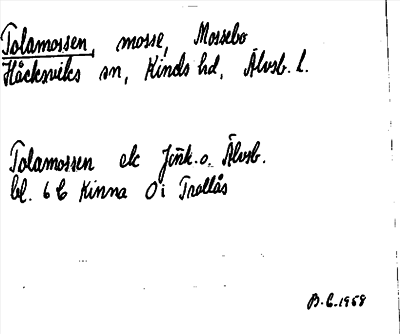 Tolamossen, mosse, Mossebo
Håcksviks sn, Kinds hd, Älvsb. l.
Tolamossen ek Jönk. o. Älvsb.
bl. 6 C Kinna O i Trollås
B.C. 1968